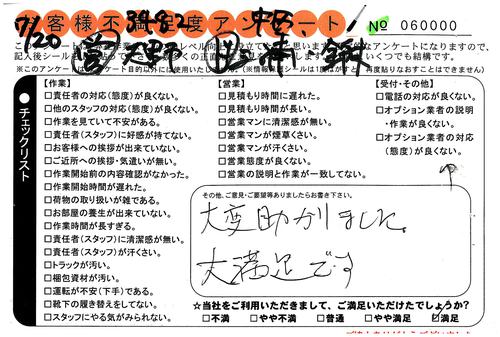 お客様不満足度アンケート
№ 060000
7/20
チェックリスト
【作業】
□責任者の対応(態度)が良くない。
□他のスタッフの対応(態度)が良くない。
□作業を見ていて不安がある。
□責任者(スタッフ)に好感が持てない。
□お客様への挨拶が出来ていない。
□ご近所への挨拶・気遣いが無い。
□作業開始前の内容確認がなかった。
□作業開始時間が遅れた。
□荷物の取り扱いが雑である。
□お部屋の養生が出来ていない。
□作業時間が長すぎる。
□責任者(スタッフ)に清潔感が無い。
□責任者(スタッフ)が汗くさい。
□トラックが汚い。
□梱包資材が汚い。
□運転が不安(下手)である。
□靴下の履き替えをしてない。
□スタッフにやる気がみられない。
【営業】
□見積もり時間に遅れた。
□見積もり時間が長い。
□営業マンに清潔感が無い。
□営業マンが煙草くさい。
□営業マンが汗くさい。
□営業態度が良くない。
□営業の説明と作業が一致してない。
【受付・その他】
□電話の対応が良くない。
□オプション業者の説明
・作業が良くない。
□オプション業者の対応
(態度)が良くない。
その他、ご意見・ご要望等ありましたらお書き下さい。
大変助かりました。
大満足です
☆当社をご利用いただきまして、ご満足いただけたでしょうか?
□不満 □やや不満 □普通 □やや満足 ☑満足